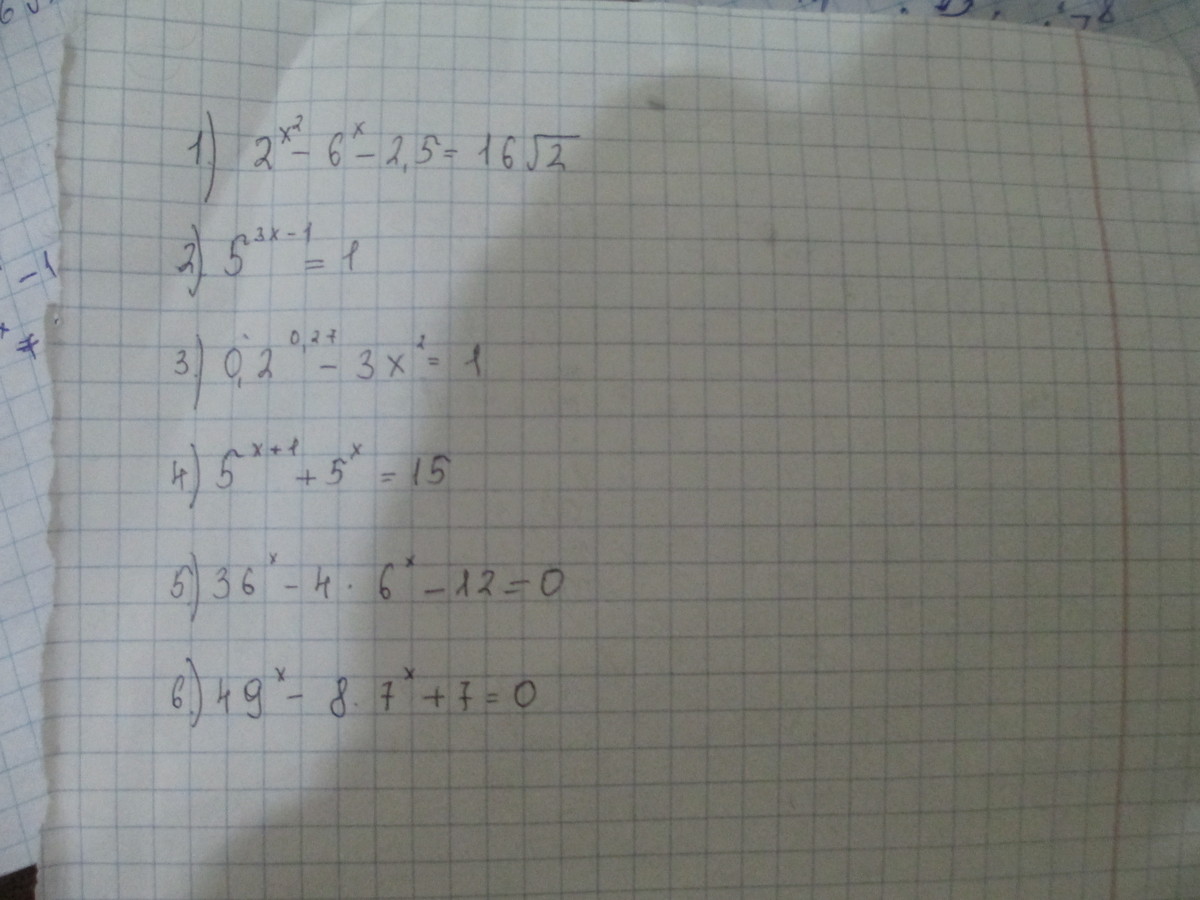 1) 2^{x^2} - 6^x - 2,5 = 16√2
2) 5^{3x-1} = 1
3) 0,2^{0,27} - 3x^2 = 1
4) 5^{x+1} + 5^x = 15
5) 36^x - 4 · 6^x - 12 = 0
6) 49^x - 8 · 7^x + 7 = 0
-1